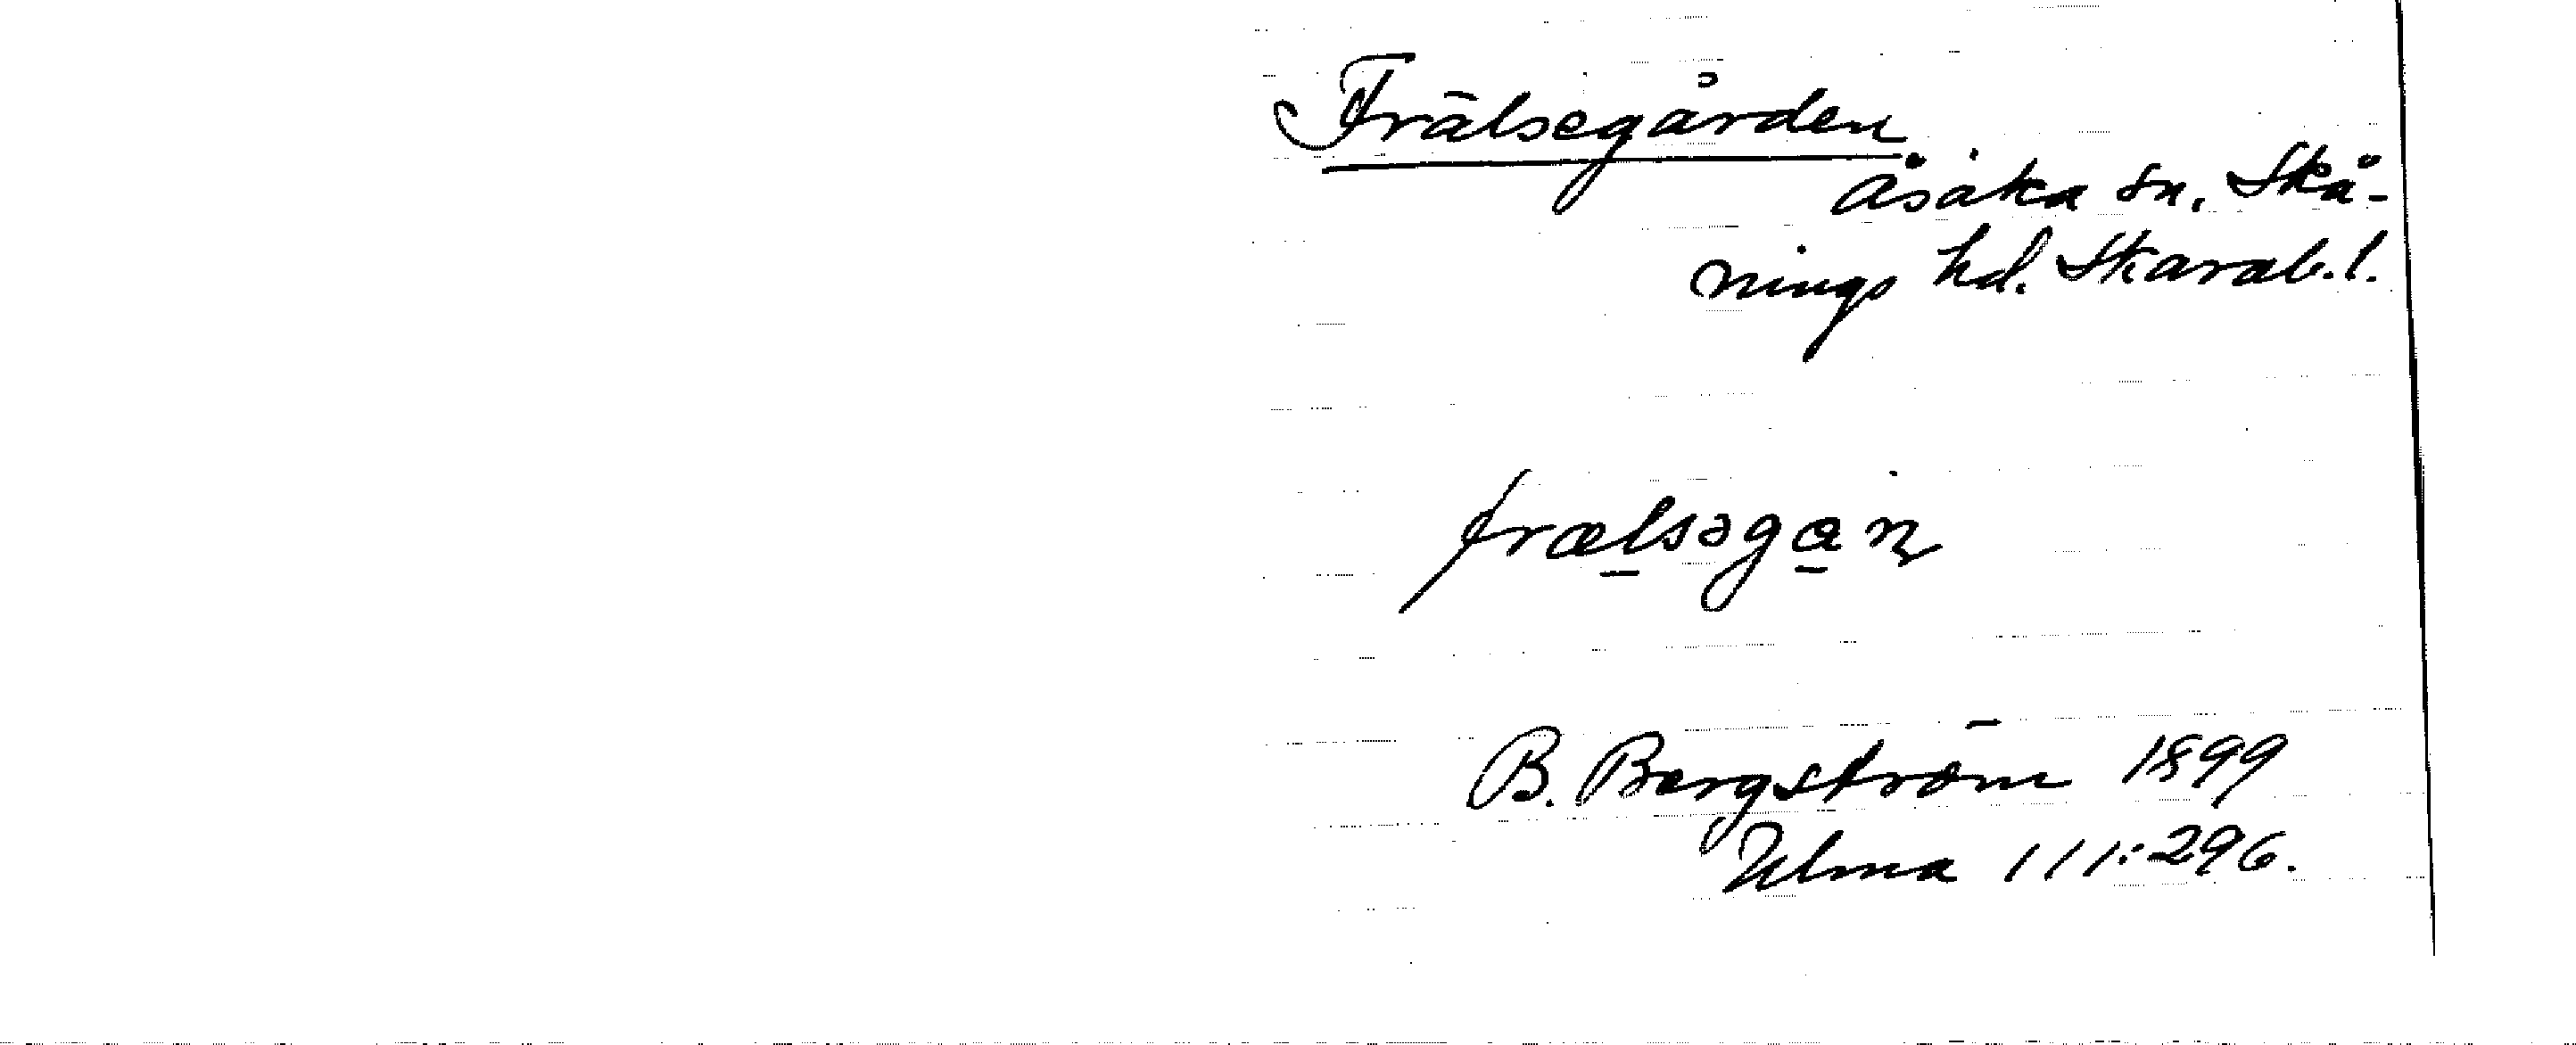 Frälsegården
Åsaka sn. Skå-
nings hd. Skarab.l.
frælsəgaɳ
B. Bergström 1899
Ulma 111:296.